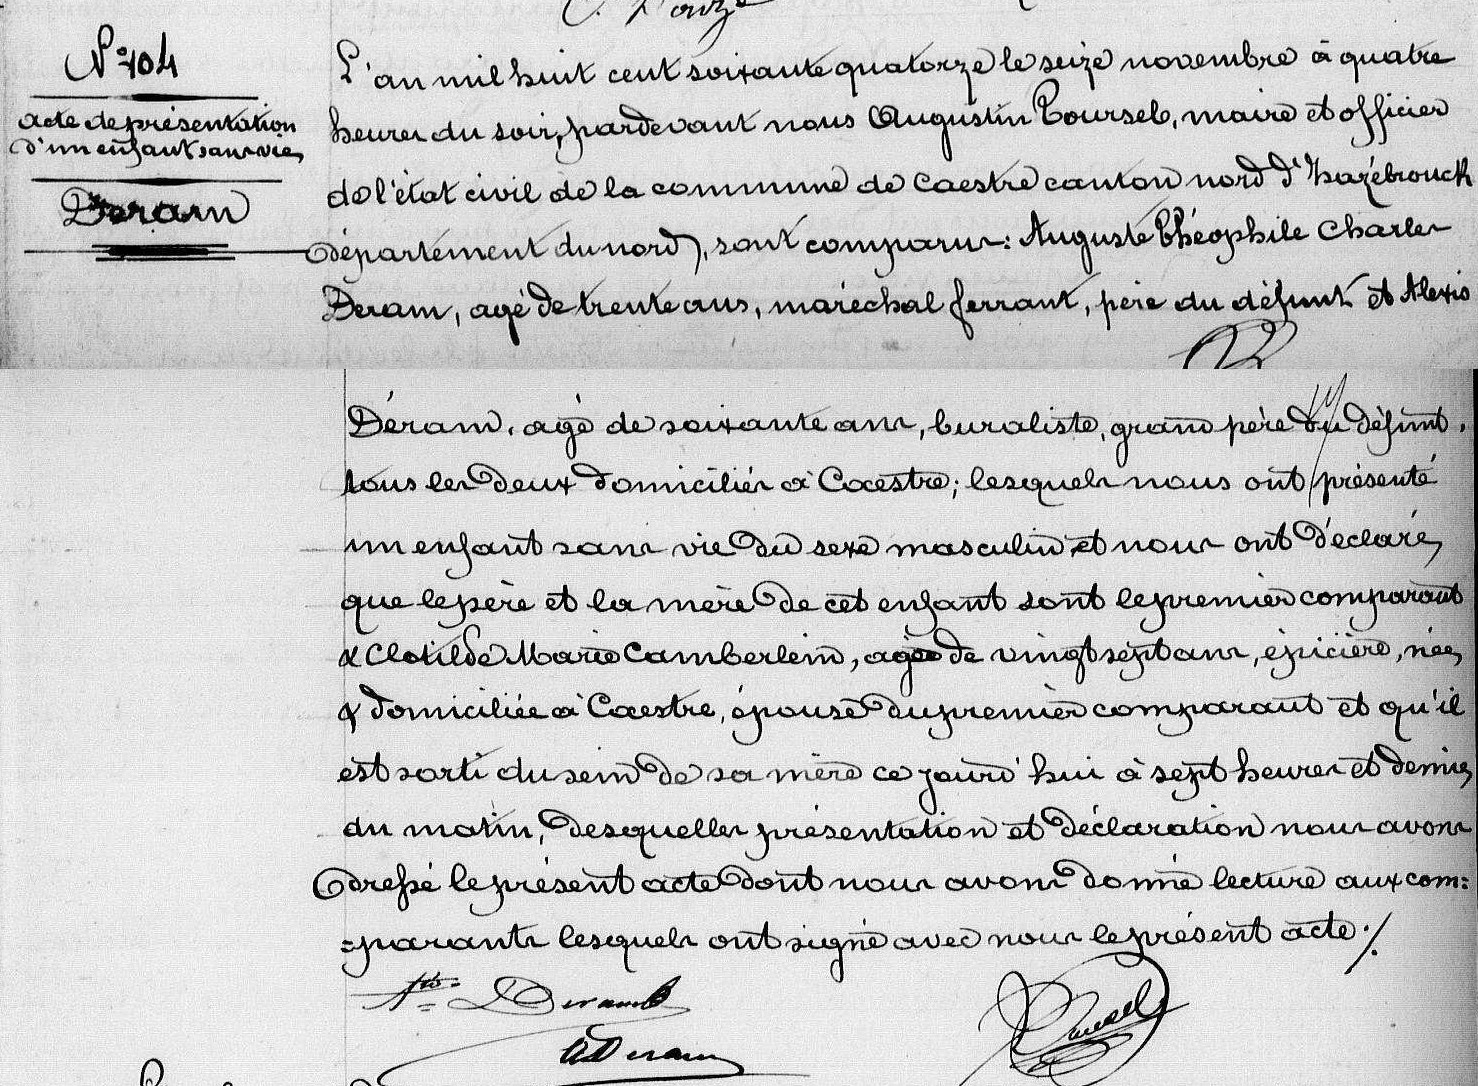 N° 104
acte de présentation
d'un enfant sans vie
Deram
L'an mil huit cent soixante quatorze le seize novembre à quatre
heures du soir, pardevant nous Augustin Toursel, maire et officier
de l'état civil de la commune de Caestre canton nord d'hazébrouck
département du nord, sont comparus: Auguste Théophile Charles
Deram, agé de trente ans, maréchal ferrant, père du défunt et Alexis
Déram, agé de soixante ans, buraliste, grand père du défunt,
tous les deux domiciliés à Caestre; lesquels nous ont présenté
un enfant sans vie du sexe masculin et nous ont déclaré
que le père et la mère de cet enfant sont le premier comparant
& Clotilde Marie Camberlein, agée de vingt sept ans, épicière, née
& domiciliée à Caestre, épouse du premier comparant et qu'il
est sorti du sein de sa mère ce jourd'hui à sept heures et demie
du matin, desquelles présentation et déclaration nous avons
dressé le présent acte dont nous avons donné lecture aux com=
=parants lesquels ont signé avec nous le présent acte ./.
Deram
A Deram
Toursel